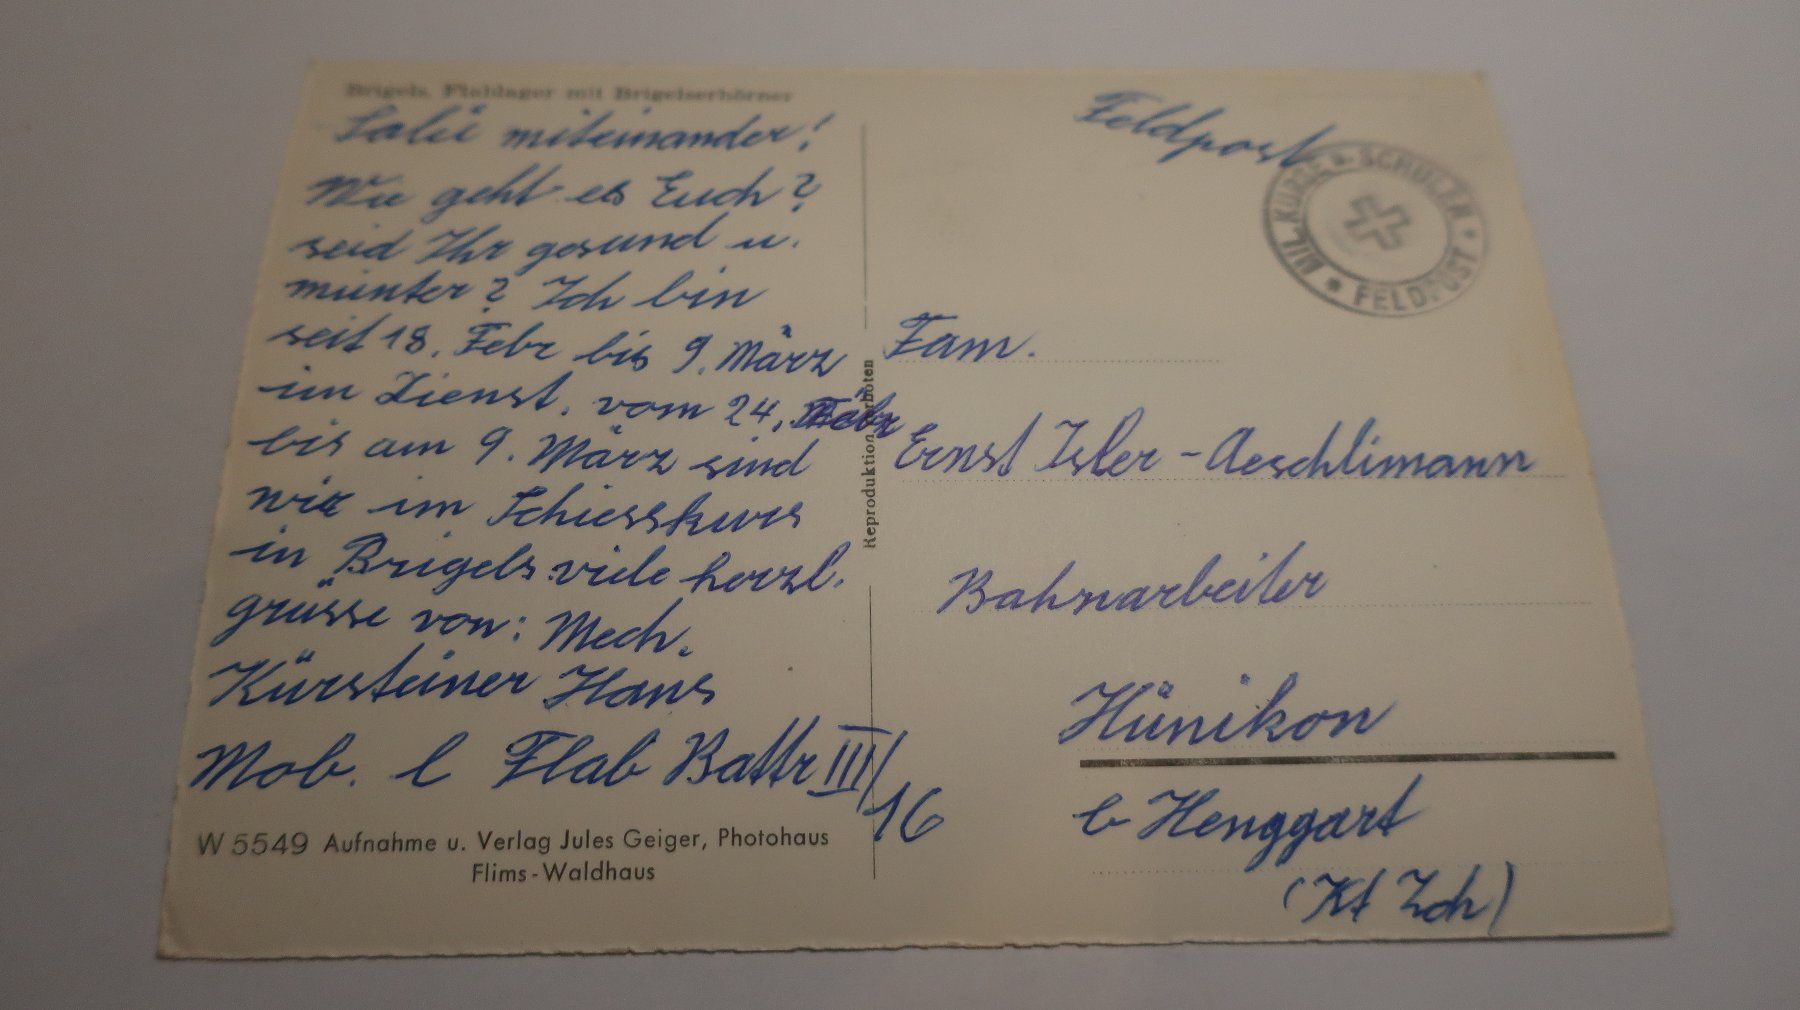 Brigels, Flablager mit Brigelserhörner
Salü miteinander!
Wie geht es Euch?
seid Ihr gesund u.
munter? Ich bin
seit 18. Febr bis 9. März
im Dienst. vom 24. Febr
bis am 9. März sind
wir im Schiesskurs
in Brigels viele herzl.
grüsse von: Mech.
Kürsteiner Hans
Mob. l Flab Battr III/
16
W 5549 Aufnahme u. Verlag Jules Geiger, Photohaus
Flims-Waldhaus
Reproduktion verboten
Feldpost
MIL. KURSE u. SCHULEN
* FELDPOST *
Fam.
Ernst Isler-Aeschlimann
Bahnarbeiter
Hünikon
b Henggart
(Kt Zch)